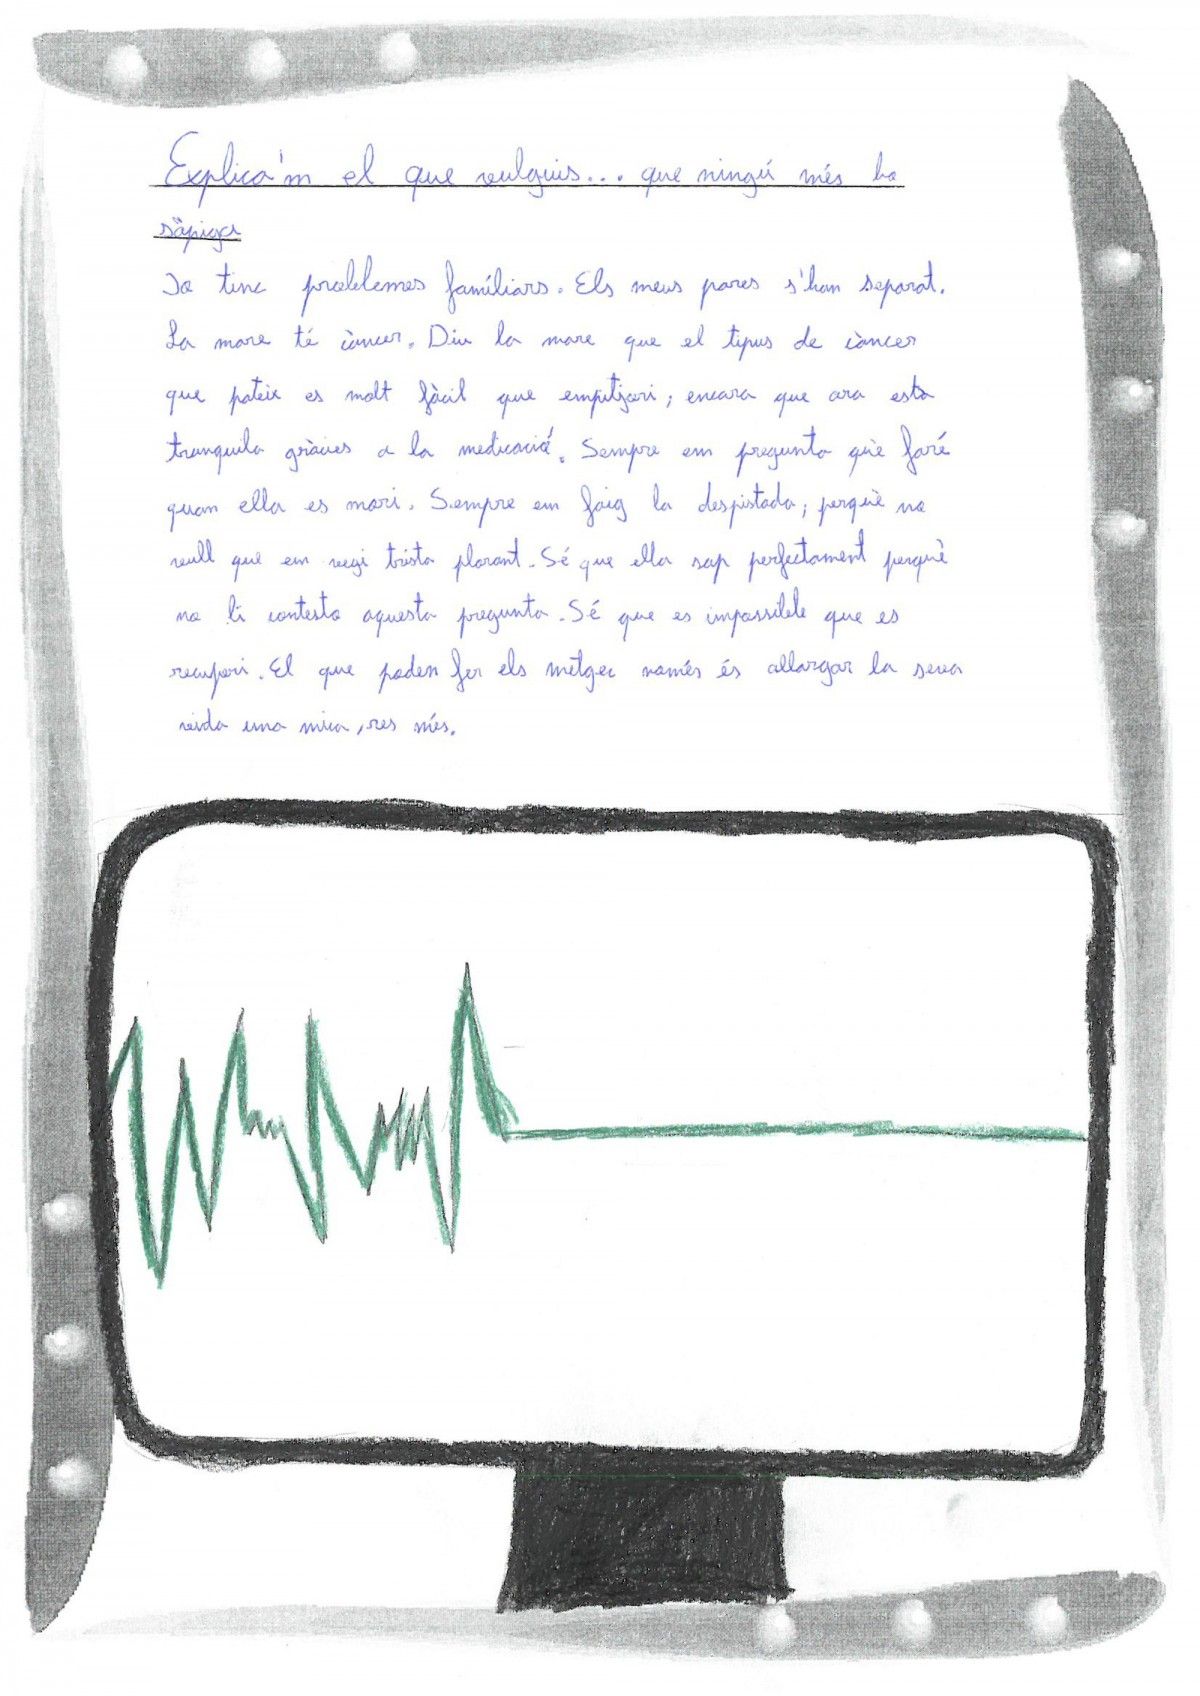 Explica'm el que vulguis... que ningú més ho
sàpiga
Jo tinc problemes famíliars. Els meus pares s'han separat.
La mare té càncer. Diu la mare que el tipus de càncer
que pateix es molt fàcil que empitjori; encara que ara esta
tranquila gràcies a la medicació. Sempre em pregunta què faré
quan ella es mori. Sempre em faig la despistada; perquè no
vull que em vegi trista plorant. Sé que ella sap perfectament perquè
no li contesto aquesta pregunta. Sé que es impossible que es
recuperi. El que poden fer els metges només és allargar la seva
vida una mica, res més.